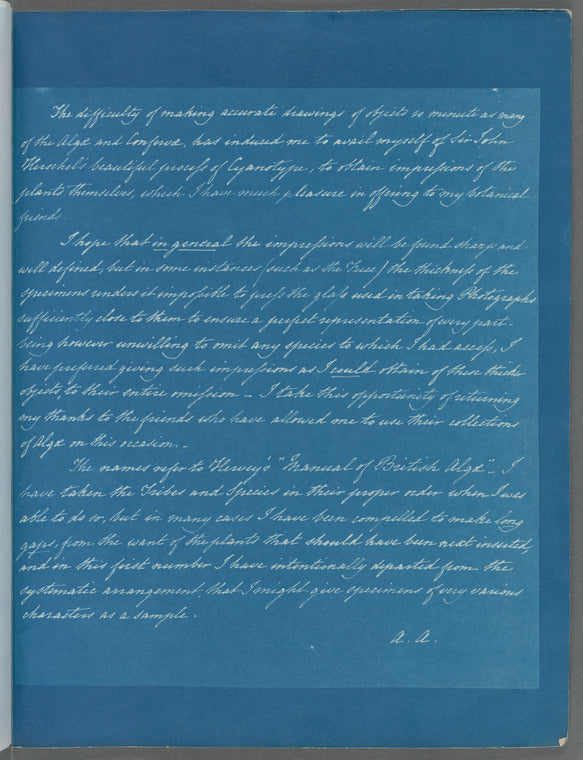 The difficulty of making accurate drawings of objects so minute as many
of the Algæ and Confervæ, has induced me to avail myself of Sir John
Herschel's beautiful process of Cyanotype, to obtain impressions of the
plants themselves, which I have much pleasure in offering to my botanical
friends.
I hope that in general the impressions will be found sharp and
well defined, but in some instances (such as the Fuci) the thickness of the
specimens renders it impossible to press the glass used in taking Photographs
sufficiently close to them to ensure a perfect representation of every part.
being however unwilling to omit any species to which I had access, I
have preferred giving such impressions as I could obtain of these thick
objects, to their entire omission – I take this opportunity of returning
my thanks to the friends who have allowed me to use their collections
of Algæ on this occasion. –
The names refer to Harvey's "Manual of British Algæ". I
have taken the Tribes and Species in their proper order when I was
able to do so, but in many cases I have been compelled to make long
gaps, from the want of the plants that should have been next inserted,
and in this first number I have intentionally departed from the
systematic arrangement that I might give specimens of very various
characters as a sample.
A. A.